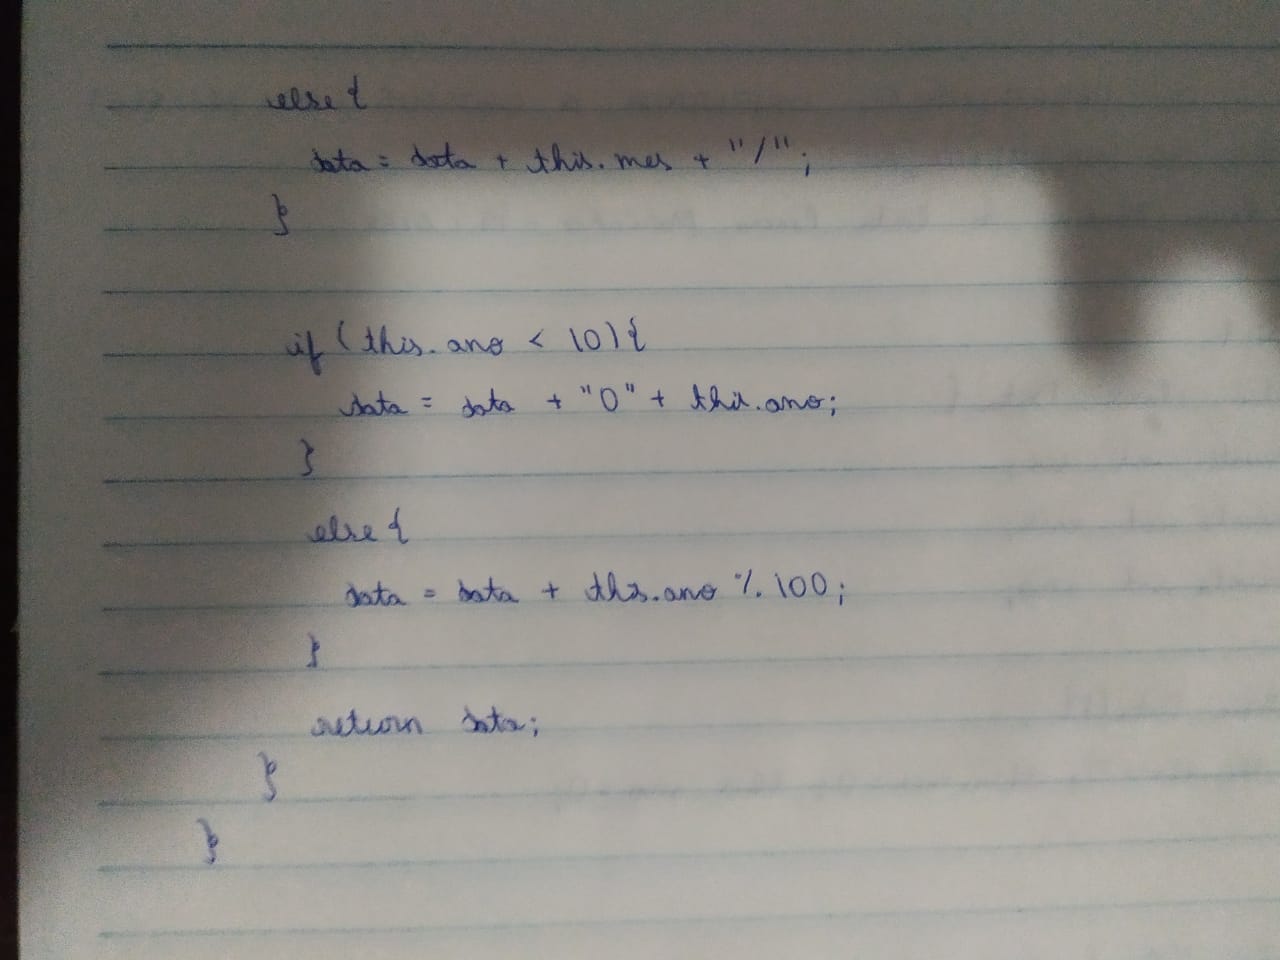 else {
data = data + this.mes + "/";
}
if (this.ano < 10) {
data = data + "0" + this.ano;
}
else {
data = data + this.ano % 100;
}
return data;
}
}